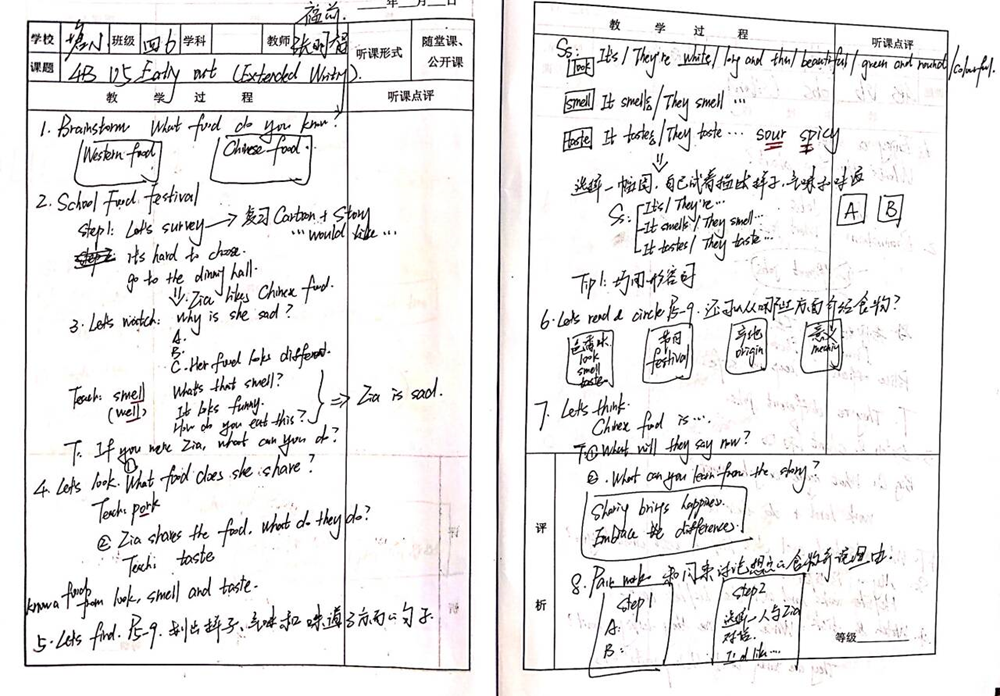 年 月 日
学校 班级 四6 学科 教师 听课形式 随堂课、公开课
课题 4B U5 Early out (Extended Writing).
教 学 过 程 听课点评
1. Brainstorm What food do you know?
Western food Chinese food.
2. School Food Festival
step1: Let's survey → 复习 Cartoon + Story
...would like...
it's hard to choose.
go to the dinning hall.
⇓ Zia likes Chinese food.
3. Let's watch: Why is she sad?
A.
B.
C. Her food looks different.
Teach: smell What's that smell?
(well) It looks funny.
How do you eat this? ⇒ Zia is sad.
T: If you were Zia, what can you do?
4. Let's look. ① What food does she share?
Teach: pork
② Zia shares the food. What do they do?
Teach: taste
know a food from look, smell and taste.
5. Let's find. P5-9. 划出样子、气味和味道等方面的句子.
教 学 过 程 听课点评
Ss: look It's / They're white / long and thin / beautiful / green and round / colourful.
smell It smells / They smell ...
taste It tastes / They taste ... sour spicy
⇓
选择一幅图，自己试着描述样子、气味和味道
Ss: It's / They're...
It smells / They smell...
It tastes / They taste...
A B
Tip1:
6. Let's read & circle P5-9. 还可以从哪些方面介绍食物?
色香味 look smell taste
节日 festival
产地 origin
意义
7. Let's think.
Chinese food is...
T: ① What will they say now?
② What can you learn from the story?
Sharing brings happiness.
Embrace the differences.
8. Pair work 和同桌讨论想交的食物和理由.
step1
A:
B:
step2
选择一人与Zia
对话.
I'd like...
评 析
等级